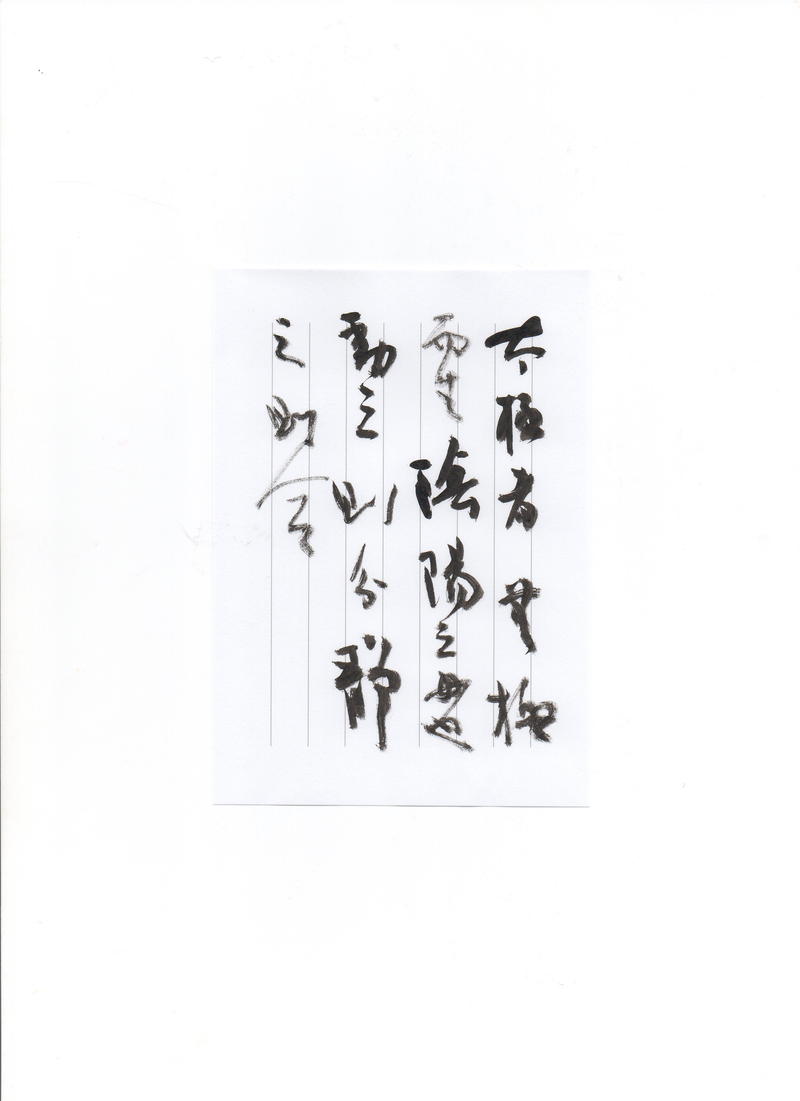 太極者無極
而生陰陽之母也
動之則分靜
之則合